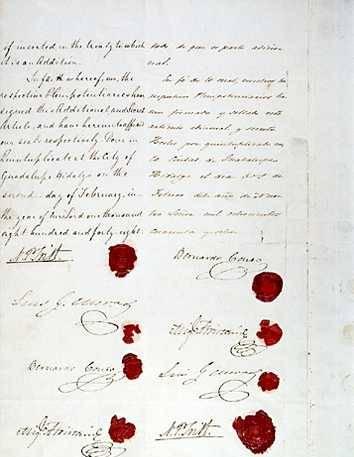 if inserted in the treaty to which
it is an Addition.
In faith whereof, we, the
respective Plenipotentiaries have
signed this Additional and Secret
Article, and have hereunto affixed
our seals respectively. Done in
Quintuplicate at the City of
Guadalupe Hidalgo on the
second day of February, in
the year of our Lord one thousand
eight hundred and forty-eight.
En fe de lo cual, nosotros los
respectivos Plenipotenciarios hemos
firmado y sellado este
artículo adicional, y secreto
Hecho por quintuplicado en
la Ciudad de Guadalupe
Hidalgo el día dos de
Febrero del año de
mil ochocientos
cuarenta y ocho.
N. P. Trist
Bernardo Couto
Luis G. Cuevas
Migl Atristain
Bernardo Couto
Luis G. Cuevas
Migl Atristain
N. P. Trist